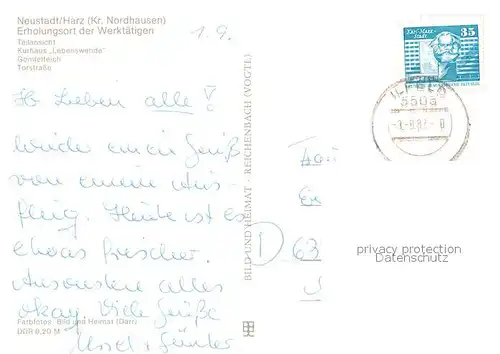 Neustadt/Harz (Kr. Nordhausen)
Erholungsort der Werktätigen
Teilansicht
Kurhaus „Lebenswende"
Gondelteich
Torstraße
1.9.
Ihr Lieben alle!
wieder einen Gruß
von einem Aus-
flug. Heute ist es
etwas frischer.
Ansonsten alles
okay. Viele Grüße
Ussel + Günter
Farbfotos: Bild und Heimat (Darr)
DDR 0,20 M
BILD UND HEIMAT · REICHENBACH (VOGTL)
35
5505
D 63
privacy protection
Datenschutz